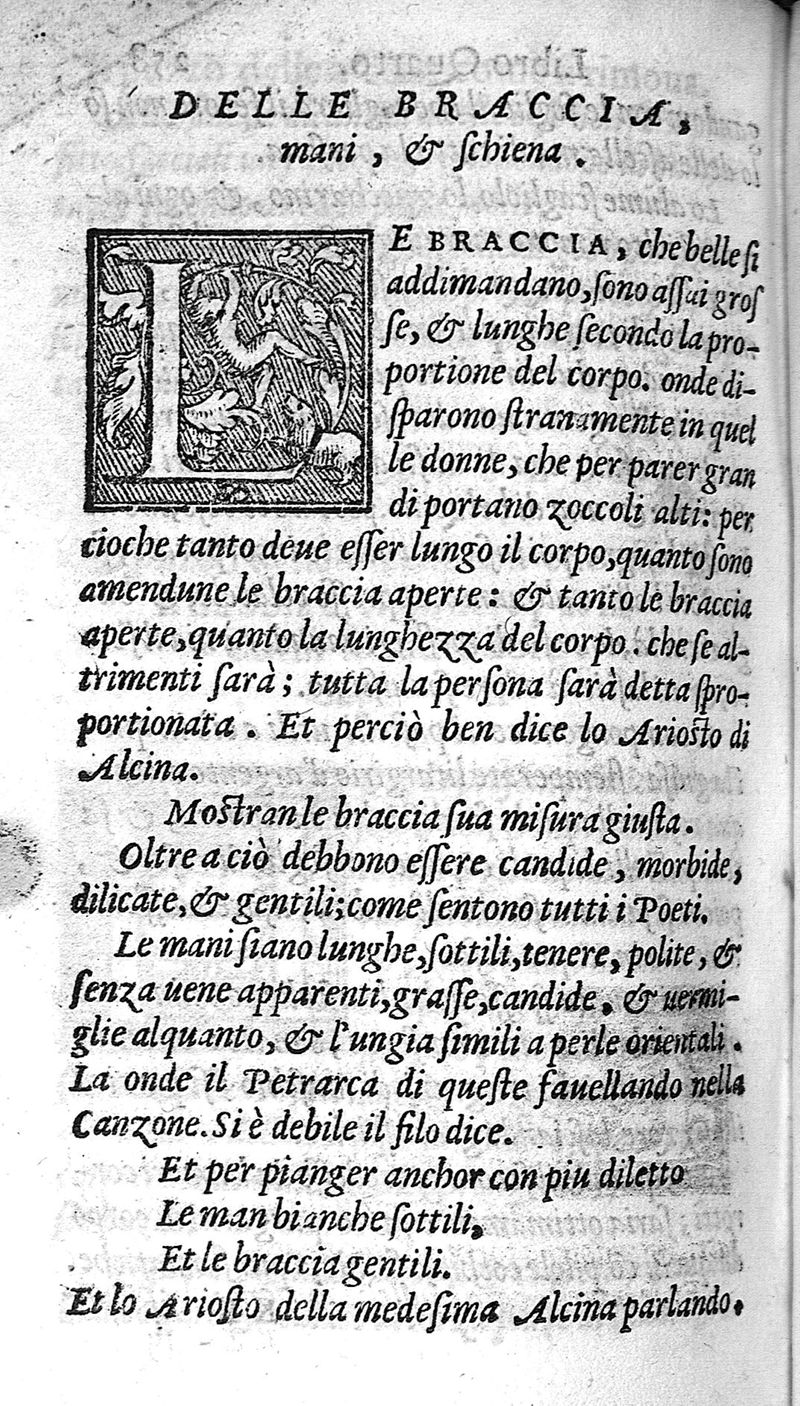 DELLE BRACCIA,
mani, & ſchiena.
LE BRACCIA, che belle ſi
addimandano, ſono aſſai groſ
ſe, & lunghe ſecondo la pro-
portione del corpo. onde di-
ſparono ſtranamente in quel
le donne, che per parer gran
di portano zoccoli alti: per
cioche tanto deue eſſer lungo il corpo, quanto ſono
amendune le braccia aperte: & tanto le braccia
aperte, quanto la lunghezza del corpo: che ſe al-
trimenti ſarà; tutta la perſona ſarà detta ſpro-
portionata. Et perciò ben dice lo Arioſto di
Alcina.
Moſtran le braccia ſua miſura giuſta.
Oltre a ciò debbono eſſere candide, morbide,
dilicate, & gentili; come ſentono tutti i Poeti.
Le mani ſiano lunghe, ſottili, tenere, polite, &
ſenza uene apparenti, graſſe, candide, & uermi-
glie alquanto, & l'ungia ſimili a perle orientali.
La onde il Petrarca di queſte fauellando nella
Canzone. Si è debile il filo dice.
Et per pianger anchor con piu diletto
Le man bianche ſottili,
Et le braccia gentili.
Et lo Arioſto della medeſima Alcina parlando.